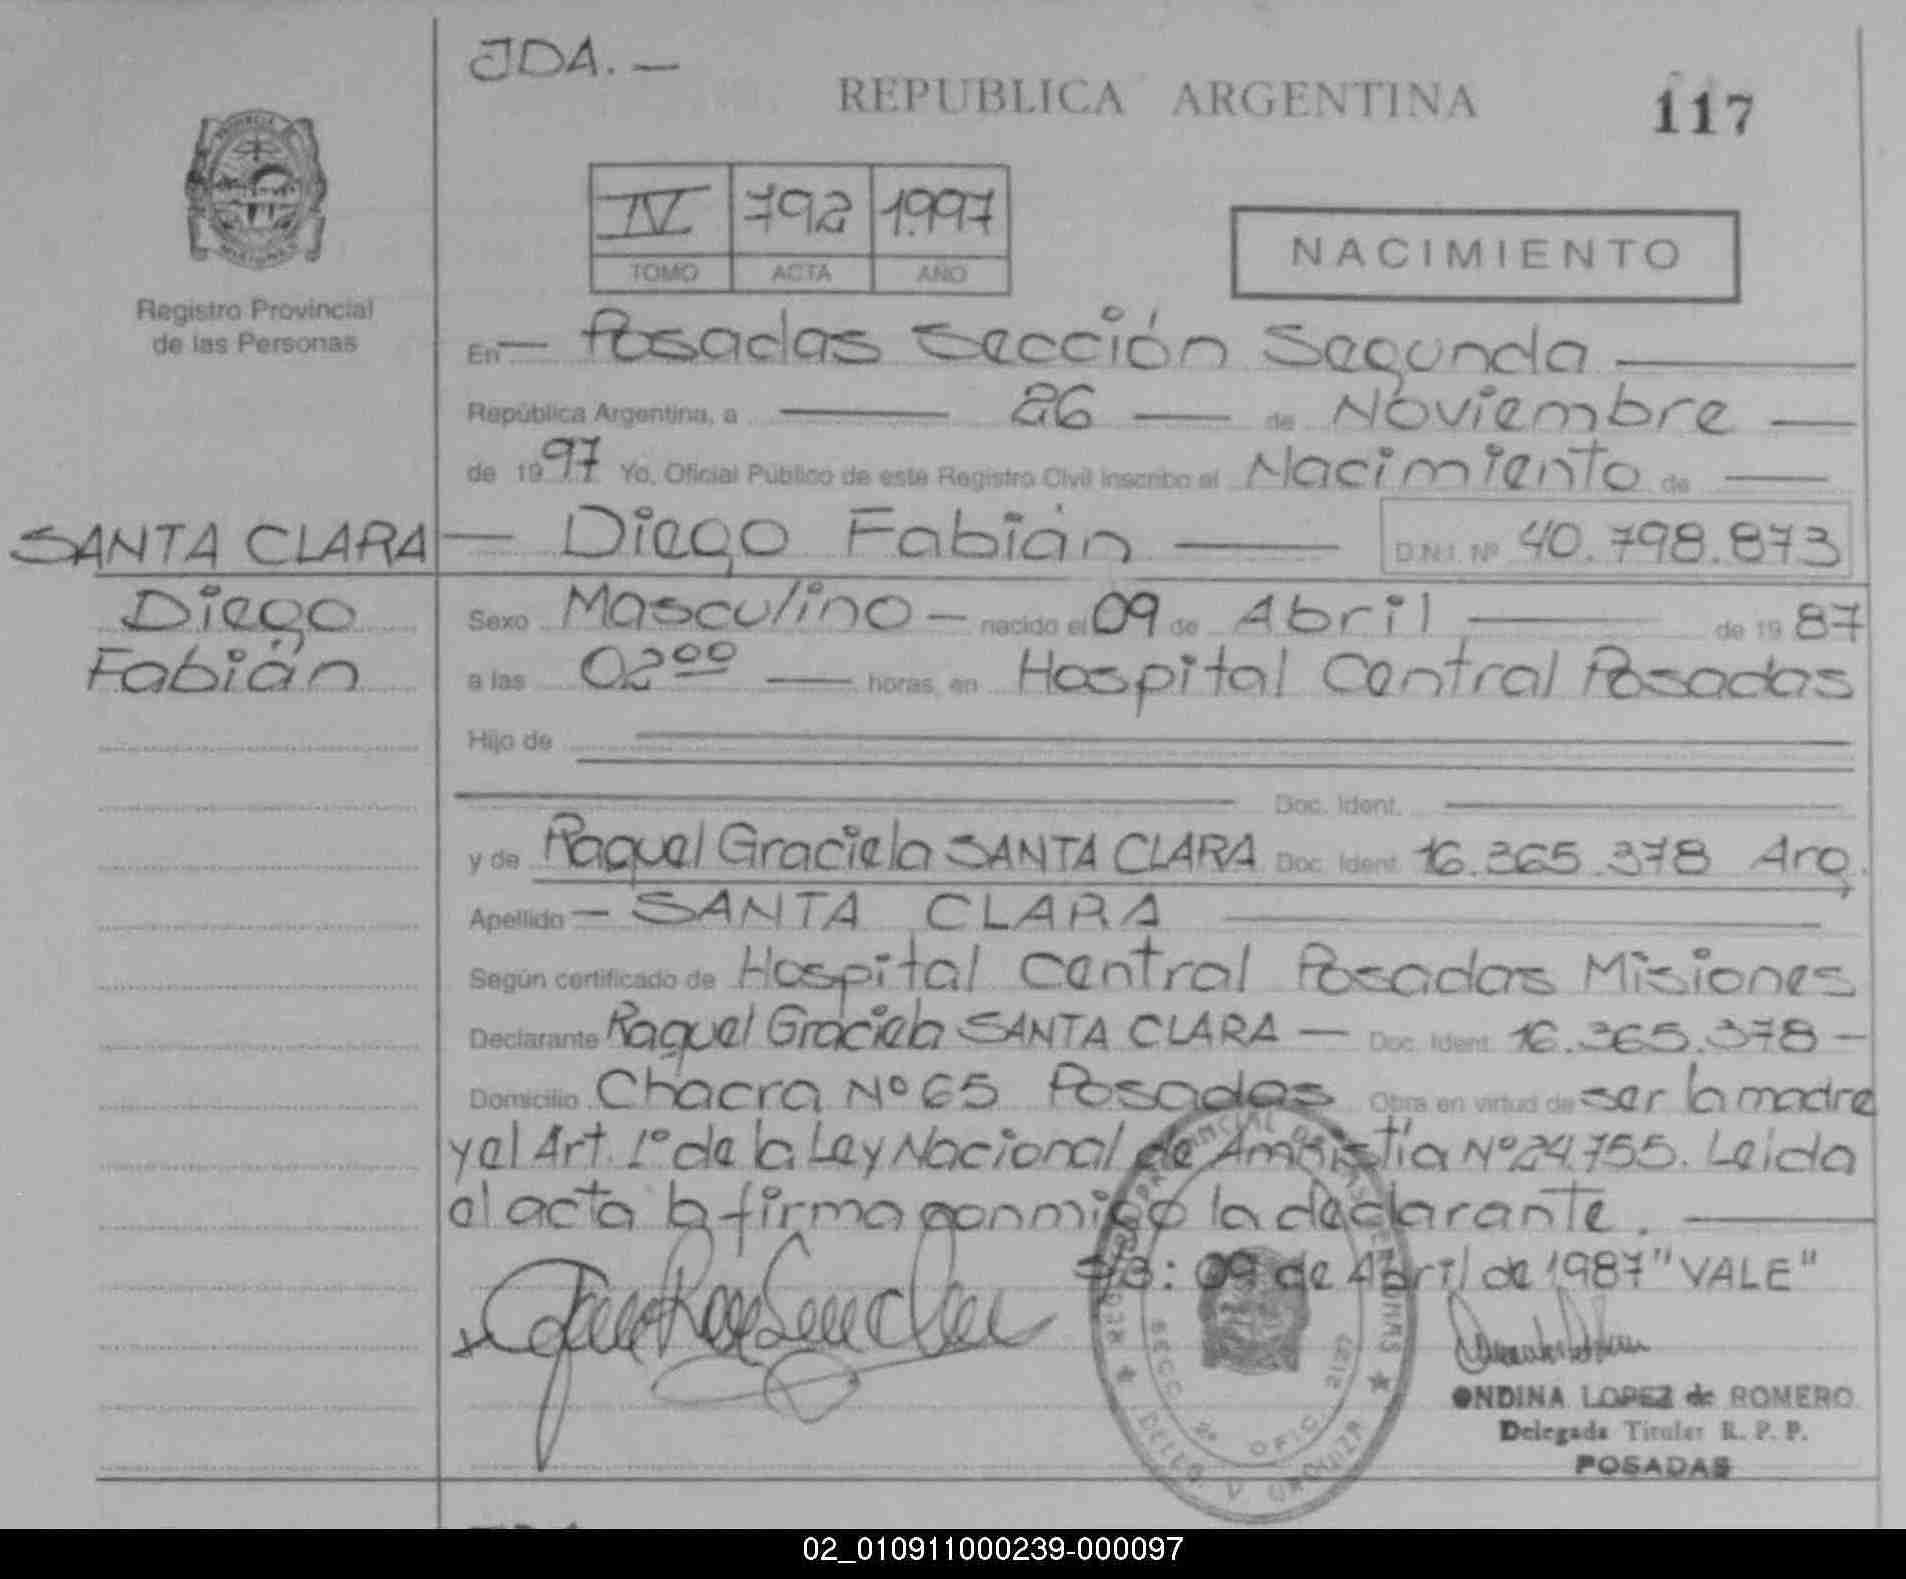 JDA. —
REPUBLICA ARGENTINA 117
PROVINCIA DE MISIONES
IV 792 1.997
TOMO ACTA AÑO
NACIMIENTO
Registro Provincial
de las Personas
En — Posadas Sección Segunda —
República Argentina, a — 26 — de Noviembre —
de 1997 Yo, Oficial Público de este Registro Civil inscribo el Nacimiento de —
SANTA CLARA — Diego Fabián — D.N.I. Nº 40.798.873
Diego
Fabián
Sexo Masculino — nacido el 09 de Abril — de 1987
a las 02 ºº — horas, en Hospital Central Posadas
Hijo de —
— Doc. Ident. —
y de Raquel Graciela SANTA CLARA Doc. Ident. 16.365.378 Arg.
Apellido — SANTA CLARA —
Según certificado de Hospital Central Posadas Misiones
Declarante Raquel Graciela SANTA CLARA — Doc. Ident. 16.365.378 —
Domicilio Chacra Nº 65 Posadas Obra en virtud de ser la madre
y el Art. 1º de la Ley Nacional de Amnistía Nº 24.755. Leida
el acta la firma conmigo la declarante. —
S/B: 09 de Abril de 1987 "VALE"
REG. PROVINCIAL DE LAS PERSONAS
SECC. 2º OFIC. 2137
DELLO. V. URQUIZA
ONDINA LOPEZ de ROMERO
Delegada Titular R. P. P.
POSADAS
02_010911000239-000097